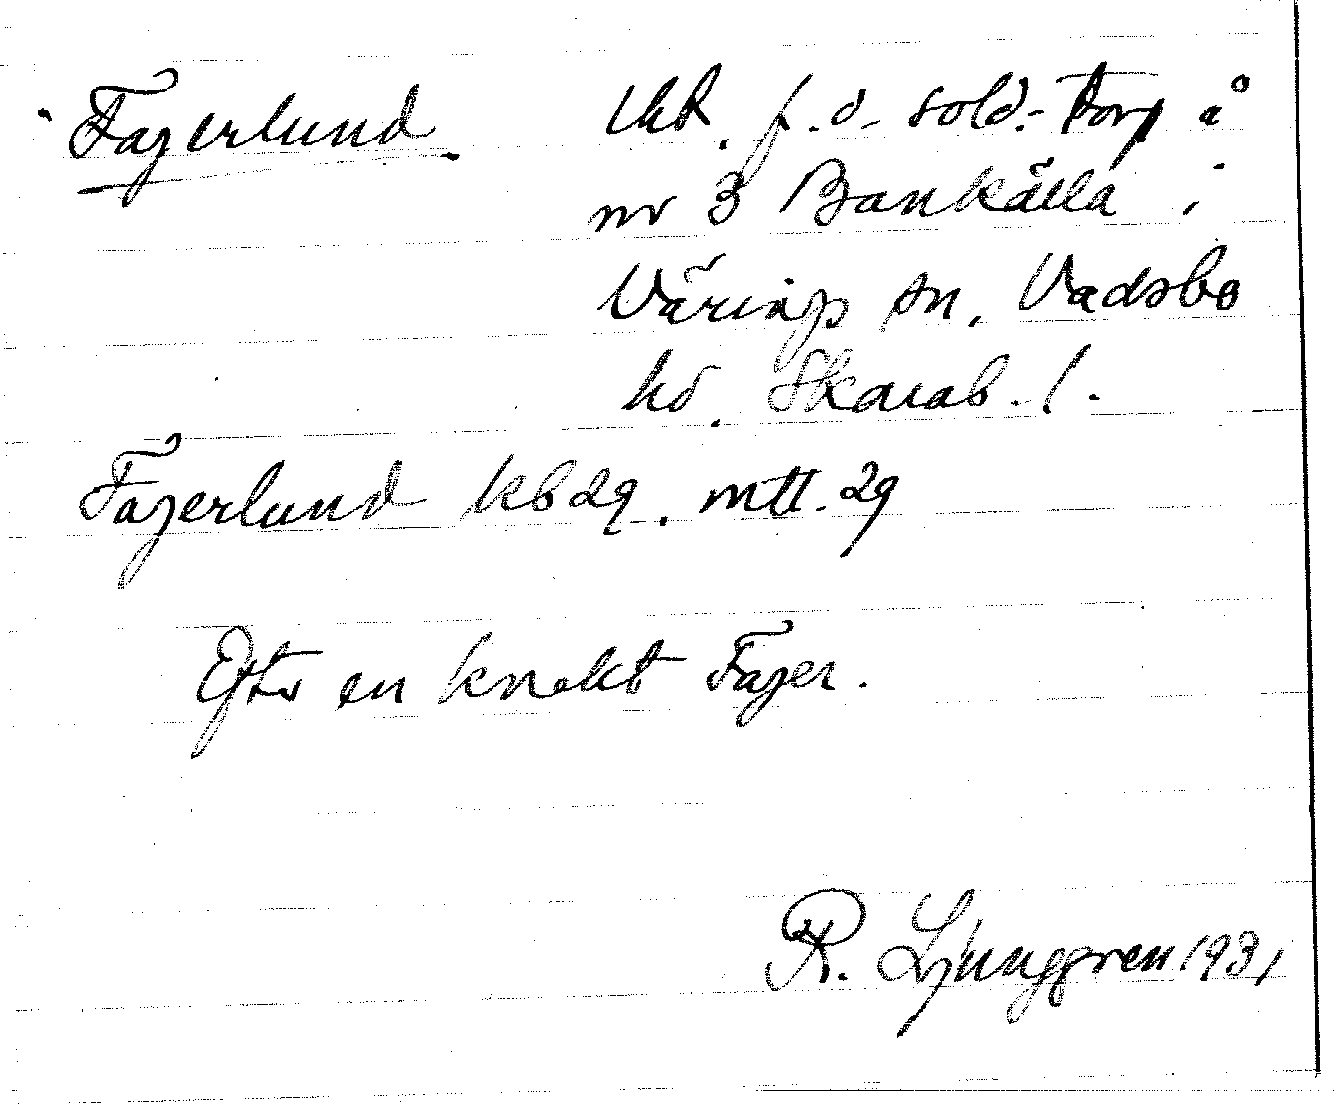 Fajerlund. lht. f.d. sold.-torp å
nr 3 Bankälla i
Värings sn, Vadsbo
hd. Skarab. l.
Fajerlund kb 29. mtl. 29
Efter en knekt Fajer.
R. Ljunggren 1931